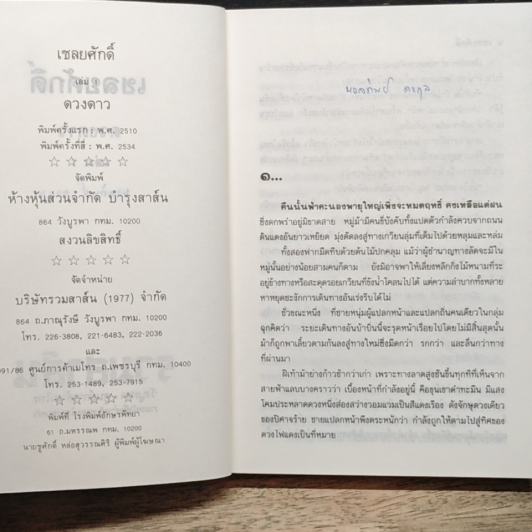 เชลยศักดิ์
เล่ม ๑
ดวงดาว
พิมพ์ครั้งแรก : พ.ศ. 2510
พิมพ์ครั้งที่สี่ : พ.ศ. 2534
จัดพิมพ์
ห้างหุ้นส่วนจำกัด บำรุงสาส์น
864 วังบูรพา กทม. 10200
สงวนลิขสิทธิ์
จัดจำหน่าย
บริษัทรวมสาส์น (1977) จำกัด
864 ถ.ภาณุรังษี วังบูรพา กทม. 10200
โทร. 226-3808, 221-6483, 222-2036
และ
091/86 ศูนย์การค้าเมโทร ถ.เพชรบุรี กทม. 10400
โทร. 253-1489, 253-7915
พิมพ์ที่ โรงพิมพ์อักษรพิทยา
61 ถ.มหรรณพ กทม. 10200
นายชูศักดิ์ หล่อสุวรรณศิริ ผู้พิมพ์ผู้โฆษณา
๑...
คืนนั้นฟ้าคะนองพายุใหญ่เพิ่งจะหมดฤทธิ์ คงเหลือแต่ฝน
ซึ่งตกพรำอยู่มิขาดสาย หมู่ม้ามีคนขี่บังคับทั้งแปดตัวกำลังควบจากถนน
ดินแดงอันยาวเหยียด มุ่งตัดลงสู่ทางเกวียนลุ่มที่เต็มไปด้วยหลุมและหล่ม
ทั้งสองฟากมืดทึบด้วยต้นไม้ปกคลุม แม้ว่าผู้ชำนาญทางลัดจะมีใน
หมู่นั้นอย่างน้อยสามคนก็ตาม ยังมิอาจพาให้เลี่ยงหลีกกิ่งไม้หนามที่ระ
อยู่ข้างทางหรือสะดุดรอยเกวียนที่ขังน้ำโคลนไปได้ แต่ความลำบากทั้งหลาย
หาหยุดชะงักการเดินทางอันเร่งรีบได้ไม่
ชั่วขณะหนึ่ง ที่ชายหนุ่มผู้แปลกหน้าและแปลกถิ่นคนเดียวในกลุ่ม
ฉุกคิดว่า ระยะเดินทางอันบ้าบิ่นนี้จะรุดหน้าเรื่อยไปโดยไม่มีสิ้นสุดนั้น
ม้าก็ถูกพาเลี้ยวตามกันลงสู่ทางใหม่ซึ่งมืดกว่า รกกว่า และลื่นกว่าทาง
ที่ผ่านมา
ฝีเท้าม้าย่างก้าวช้ากว่าเก่า เพราะทางลาดสูงชันขึ้นทุกทีที่เห็นจาก
สายฟ้าแลบบางคราวว่า เบื้องหน้าที่กำลังอยู่นี้ คือขุนเขาดำทะมึน มีแสง
โคมประหลาดดวงหนึ่งส่องสว่างวอมแวมเป็นสีแดงเรื่อ ดังจักษุดวงเดียว
ของปีศาจร้าย ชายแปลกหน้าพึงตระหนักว่า กำลังถูกให้ตามไปสู่ทิศของ
ดวงไฟแดงเป็นที่หมาย